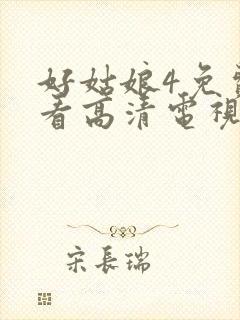 好姑娘4免
看高清電視
宋長瑞